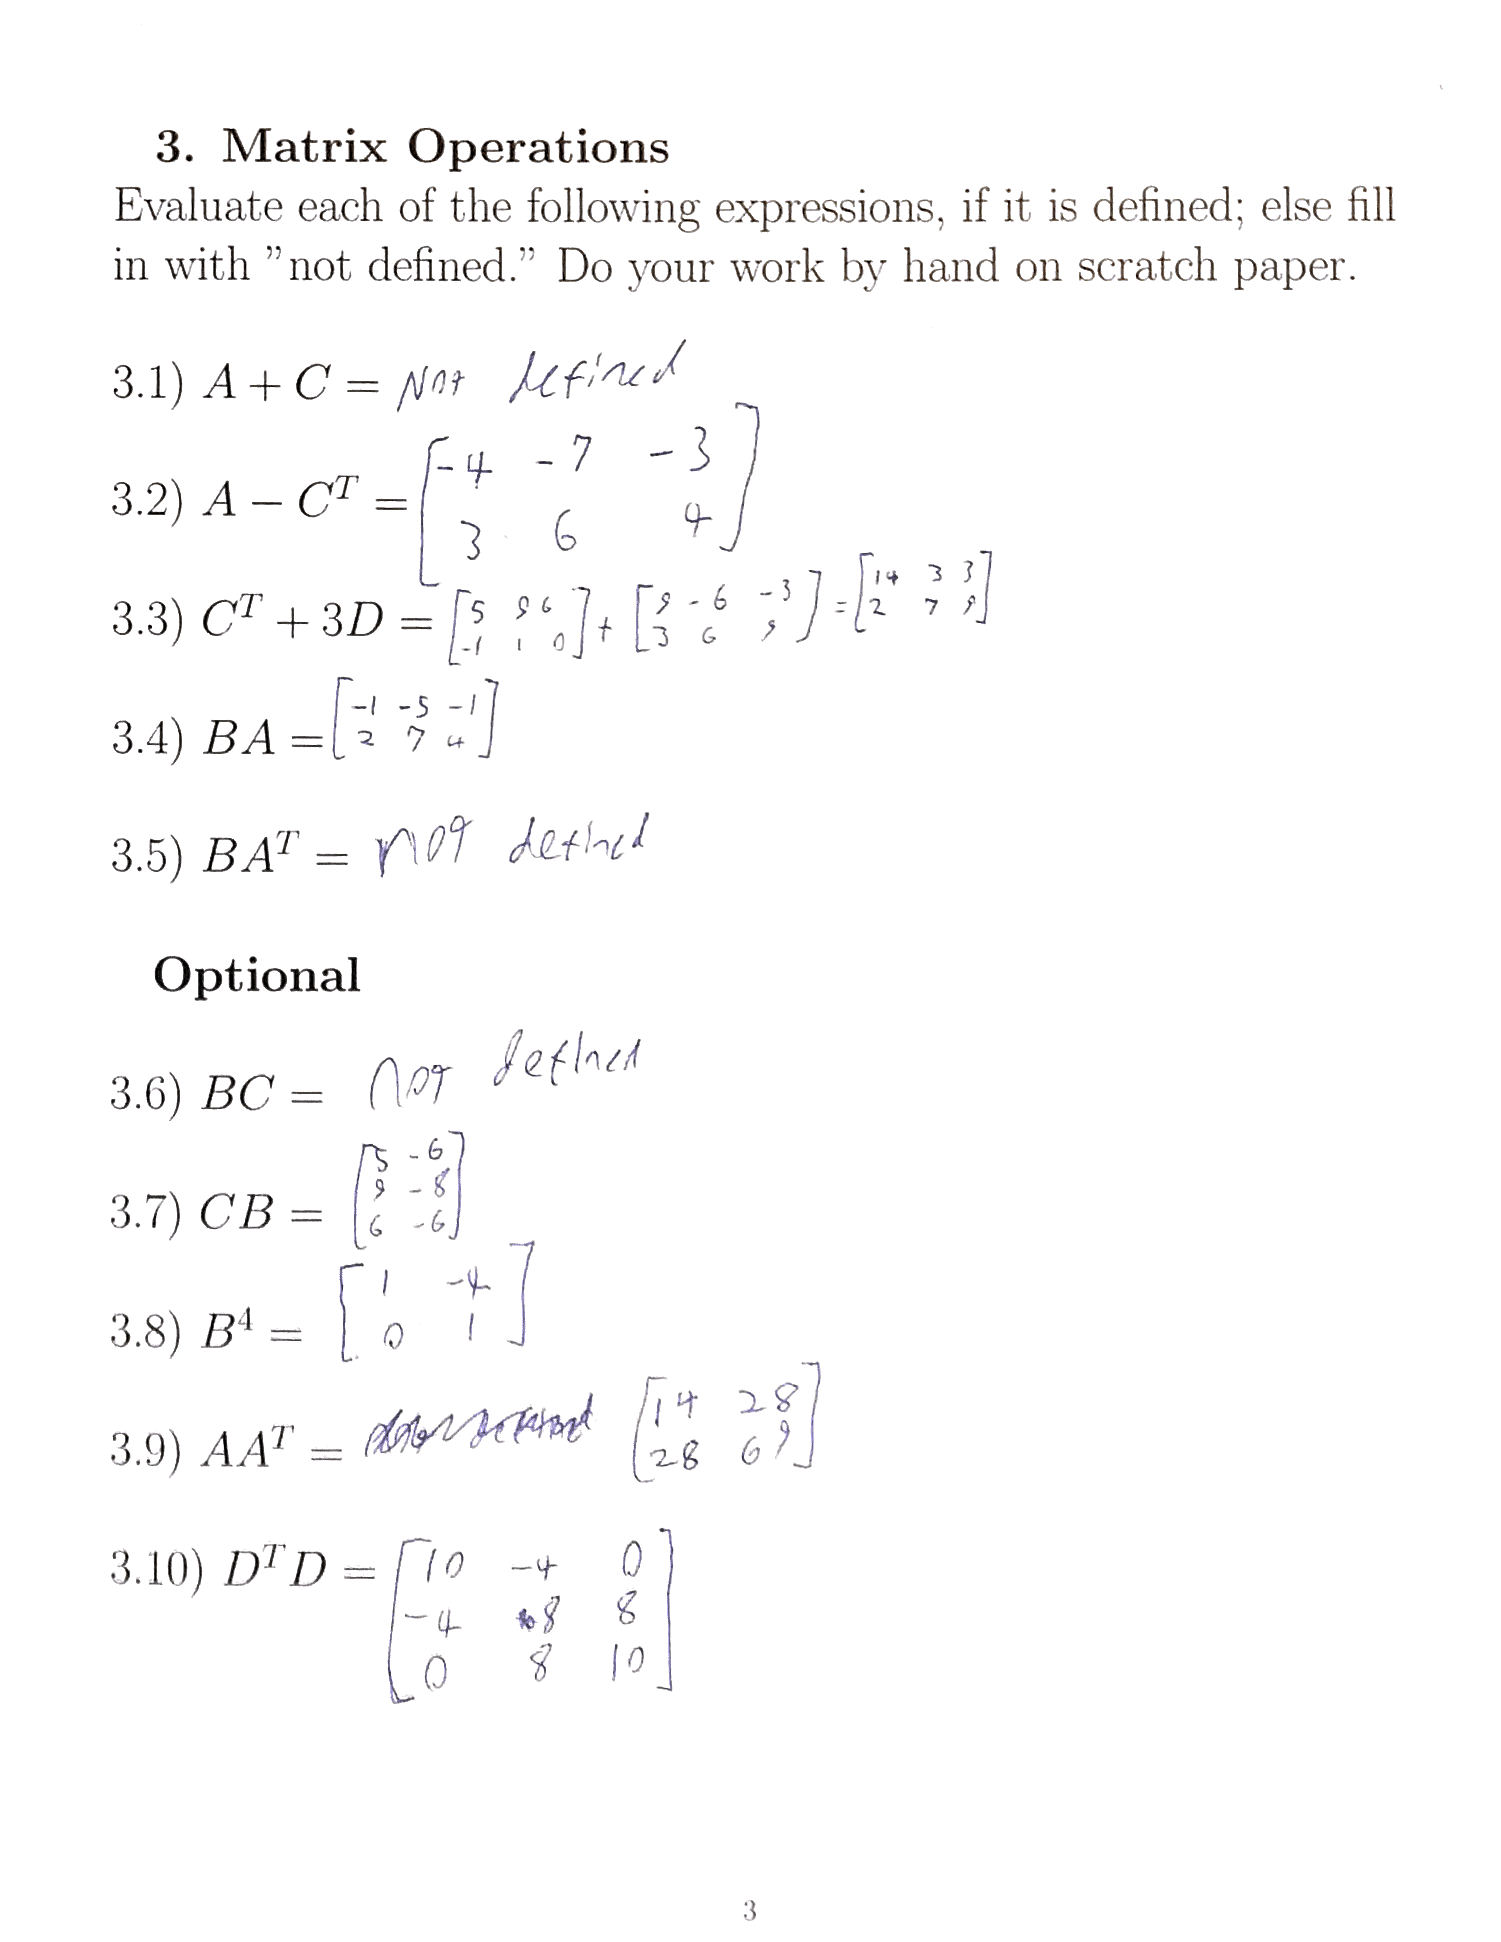 3. Matrix Operations
Evaluate each of the following expressions, if it is defined; else fill
in with ”not defined.” Do your work by hand on scratch paper.
3.1) A + C = Not defined
3.2) A − C^T = [-4 -7 -3
3 6 4]
3.3) C^T + 3D = [5 9 6 ] + [9 -6 -3] = [14 3 3]
[-1 1 0] [3 6 9] [2 7 9]
3.4) BA = [-1 -5 -1]
[2 7 4]
3.5) BA^T = not defined
Optional
3.6) BC = not defined
3.7) CB = [5 -6]
[9 -8]
[6 -6]
3.8) B^4 = [1 -4]
[0 1]
3.9) AA^T = [14 28]
[28 69]
3.10) D^T D = [10 -4 0]
[-4 8 8]
[0 8 10]
3